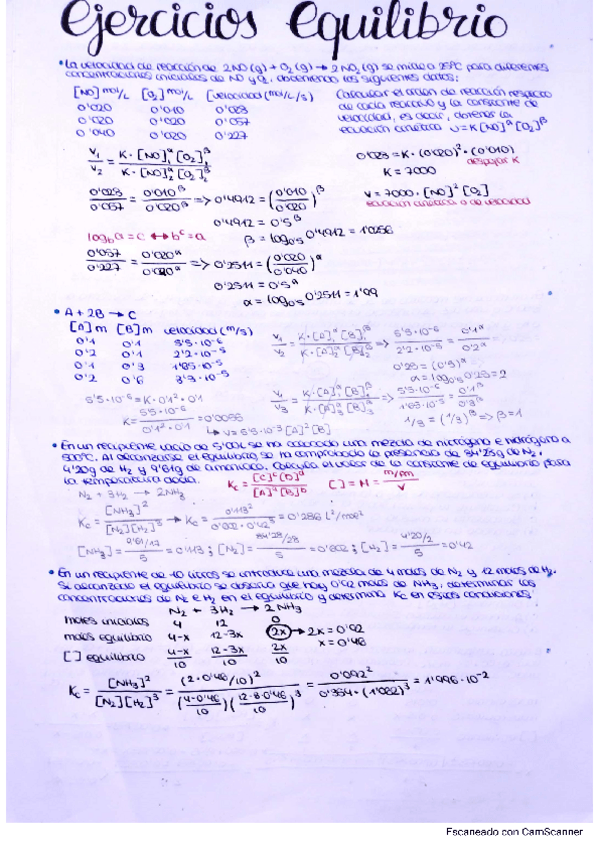 Ejercicios Equilibrio
• La velocidad de reacción de 2NO(g) + O₂(g) → 2NO₂(g) se mide a 25ºC para diferentes
concentraciones iniciales de NO y O₂, obteniendo los siguientes datos:
[NO] mol/L [O₂] mol/L [velocidad (mol/L/s)
0'020 0'010 0'028
0'020 0'020 0'057
0'040 0'020 0'227
Calcular el orden de reacción respecto
de cada reactivo y la constante de
velocidad, es decir, obtener la
ecuación cinética v=K[NO]^α[O₂]^β
v₁/v₂ = K·[NO]₁^α[O₂]₁^β / K·[NO]₂^α[O₂]₂^β
0'028 = K·(0'020)²·(0'010)
despejar K
K = 7000
0'028/0'057 = 0'010^β/0'020^β => 0'4912 = (0'010/0'020)^β
v = 7000·[NO]²[O₂]
ecuación cinética o de velocidad
0'4912 = 0'5^β
log_b a = c ↔ b^c = a
β = log₀'₅ 0'4912 = 1'0256
0'057/0'227 = 0'020^α/0'040^α => 0'2511 = (0'020/0'040)^α
0'2511 = 0'5^α
α = log₀'₅ 0'2511 = 1'99
• A + 2B → C
[A] m [B] m velocidad (m/s)
0'1 0'1 5'5·10⁻⁶
0'2 0'1 2'2·10⁻⁵
0'1 0'3 1'65·10⁻⁵
0'2 0'6 3'3·10⁻⁵
v₁/v₂ = K·[A]₁^α[B]₁^β / K·[A]₂^α[B]₂^β => 5'5·10⁻⁶/2'2·10⁻⁵ = 0'1^α/0'2^α
0'25 = (0'5)^α
α = log₀'₅ 0'25 = 2
v₁/v₃ = K·[A]₁^α[B]₁^β / K·[A]₃^α[B]₃^β => 5'5·10⁻⁶/1'65·10⁻⁵ = 0'1^β/0'3^β
1/3 = (1/3)^β => β = 1
5'5·10⁻⁶ = K·0'1²·0'1
K = 5'5·10⁻⁶/0'1²·0'1 = 0'0055
↳ v = 5'5·10⁻³ [A]²[B]
• En un recipiente vacío de 5'00L se ha colocado una mezcla de nitrógeno e hidrógeno a
500ºC. Al alcanzarse el equilibrio se ha comprobado la presencia de 84'28g de N₂,
4'20g de H₂ y 9'61g de amoniaco. Calcula el valor de la constante de equilibrio para
la temperatura dada.
Kc = [C]^c[D]^d / [A]^a[B]^b [ ] = M = m/Pm / V
N₂ + 3H₂ → 2NH₃
Kc = [NH₃]²/[N₂][H₂]³ → Kc = 0'113²/0'602·0'42³ = 0'286 L²/mol²
[NH₃] = 9'61/17 / 5 = 0'113; [N₂] = 84'28/28 / 5 = 0'602; [H₂] = 4'20/2 / 5 = 0'42
• En un recipiente de 10 litros se introduce una mezcla de 4 moles de N₂ y 12 moles de H₂.
Si alcanzado el equilibrio se observa que hay 0'92 moles de NH₃, determinar las
concentraciones de N₂ e H₂ en el equilibrio y determina Kc en estas condiciones:
N₂ + 3H₂ → 2NH₃
moles iniciales 4 12 0
moles equilibrio 4-x 12-3x 2x → 2x = 0'92
x = 0'46
[ ] equilibrio 4-x/10 12-3x/10 2x/10
Kc = [NH₃]²/[N₂][H₂]³ = (2·0'46/10)² / (4-0'46/10)(12-3·0'46/10)³ = 0'092²/0'354·(1'062)³ = 1'996·10⁻²
Escaneado con CamScanner